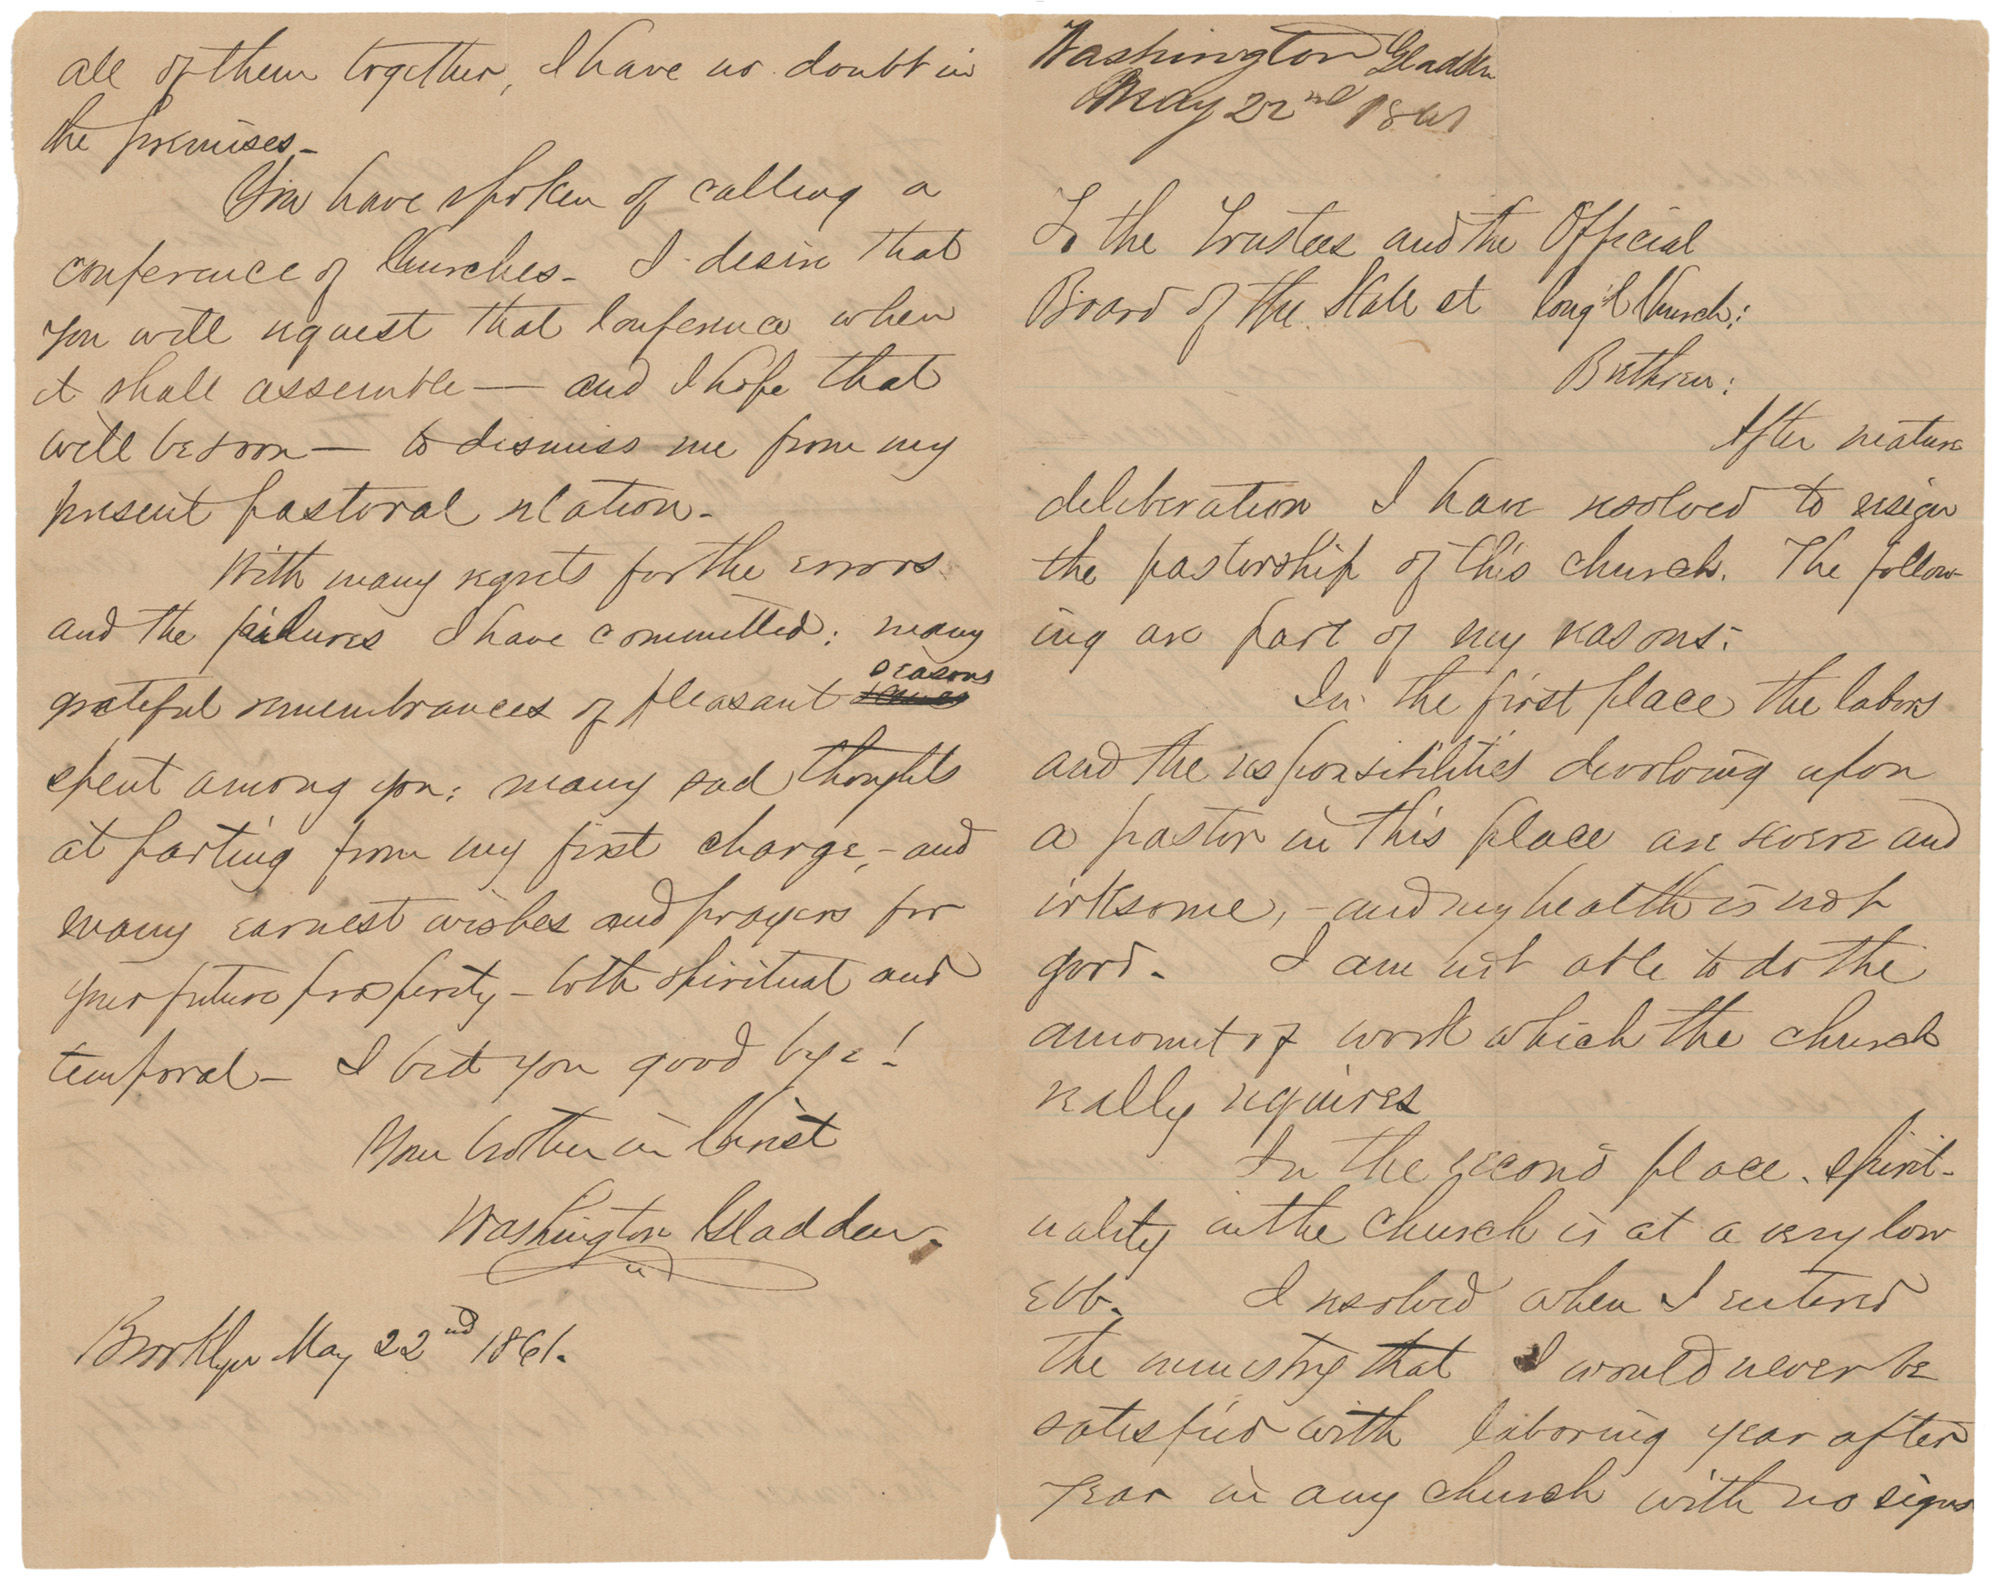 Washington Gladden
May 22nd 1861
To the Trustees and the Official
Board of the State St Cong'l Church:
Brethren:
After mature
deliberation I have resolved to resign
the pastorship of this church. The follow-
ing are part of my reasons:
In the first place the labors
and the responsibilities devolving upon
a pastor in this place are severe and
irksome, – and my health is not
good. I am not able to do the
amount of work which the church
really requires
In the second place, spirit-
uality in the church is at a very low
ebb. I resolved when I entered
the ministry that I would never be
satisfied with laboring year after
year in any church with no signs
all of them together, I have no doubt in
the premises –
You have spoken of calling a
conference of Churches – I desire that
you will request that Conference when
it shall assemble — and I hope that
will be soon — to dismiss me from my
present pastoral relation –
With many regrets for the errors
and the failures I have committed; many
grateful remembrances of pleasant seasons
spent among you; many sad thoughts
at parting from my first charge, – and
many earnest wishes and prayers for
your future prosperity – both spiritual and
temporal – I bid you good bye!
Your brother in Christ
Washington Gladden.
Brooklyn May 22nd 1861.